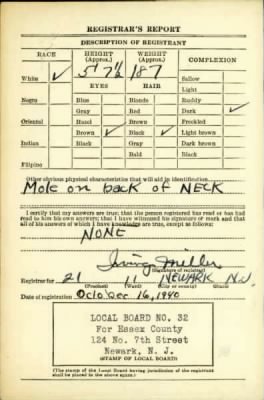 REGISTRAR'S REPORT
DESCRIPTION OF REGISTRANT
RACE HEIGHT (Approx.) WEIGHT (Approx.) COMPLEXION
White ✓ 5' 7½ 187 Sallow
EYES HAIR Light
Negro Blue Blonde Ruddy
Gray Red Dark ✓
Oriental Hazel Brown Freckled
Brown ✓ Black ✓ Light brown
Indian Black Gray Dark brown
Bald Black
Filipino
Other obvious physical characteristics that will aid in identification
Mole on back of NECK
I certify that my answers are true; that the person registered has read or has
had read to him his own answers; that I have witnessed his signature or mark and that
all of his answers of which I have knowledge are true, except as follows:
NONE
Irving Miller
(Signature of registrar)
Registrar for 21 11 NEWARK N.J.
(City or county) (State)
Date of registration October 16, 1940
LOCAL BOARD NO. 32
For Essex County
124 No. 7th Street
Newark, N. J.
(STAMP OF LOCAL BOARD)
(The stamp of the Local Board having jurisdiction of the registrant
shall be placed in the above space.)